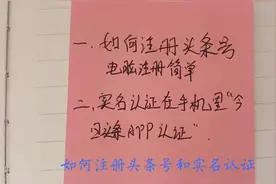 一.如何注册头条号
电脑注册简单
二.实名认证在手机里“今
日头条APP认证”.
如何注册头条号和实名认证